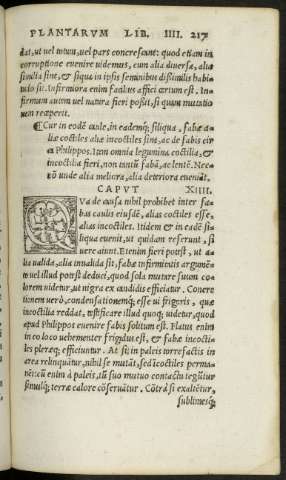 PLANTARVM LIB. IIII. 217
dat, ut uel totum, uel pars concrescant: quod etiam in
corruptione euenire uidemus, cum alia diuersa, alia
similia sint, & siqua in ipsis seminibus dissimilis habi
tudo sit. Infirmiora enim facilius affici certum est. In
firmum autem uel natura fieri potest, si quam mutatio
nem reaperit.
Cur in eodē caule, in eademq; siliqua, fabæ a-
liæ coctiles aliæ incoctiles sint, ac de fabis cir
ca Philippos. Item omnia legumina coctilia, &
incoctilia fieri, non tantū fabā, ac lentē. Nec
nō unde alia meliora, alia deteriora eueniāt.
CAPVT XIIII.
QVa de causa nihil prohibet inter fa-
bas caulis eiusdē, alias coctiles esse,
alias incoctiles. Itidem & in eadē si-
liqua euenit, ut quidam referunt, si
uere aiunt. Etenim fieri potest, ut a-
lia ualida, alia inualida sit, fabæ infirmitatis argumēn
to uel illud potest deduci, quod sola mutare suum co-
lorem uidetur, ut nigra ex candidis efficiatur. Concre
tionem uerò, condensationemq; esse ui frigoris, quæ
incoctilia reddat, testificare illud quoq; uidetur, quod
apud Philippos euenire fabis solitum est. Flatus enim
in eo loco uehementer frigidus est, & fabæ incocti-
les pleræq; efficiuntur. At si in paleis torrefactis in
area relinquātur, nihil se mutāt, sed īcoctiles perma-
nēt: cū enim à paleis, tū suo mutuo contactu tegūtur
simulq; terræ calore cōseruātur. Cōtrà si exaltētur,
sublimesq;